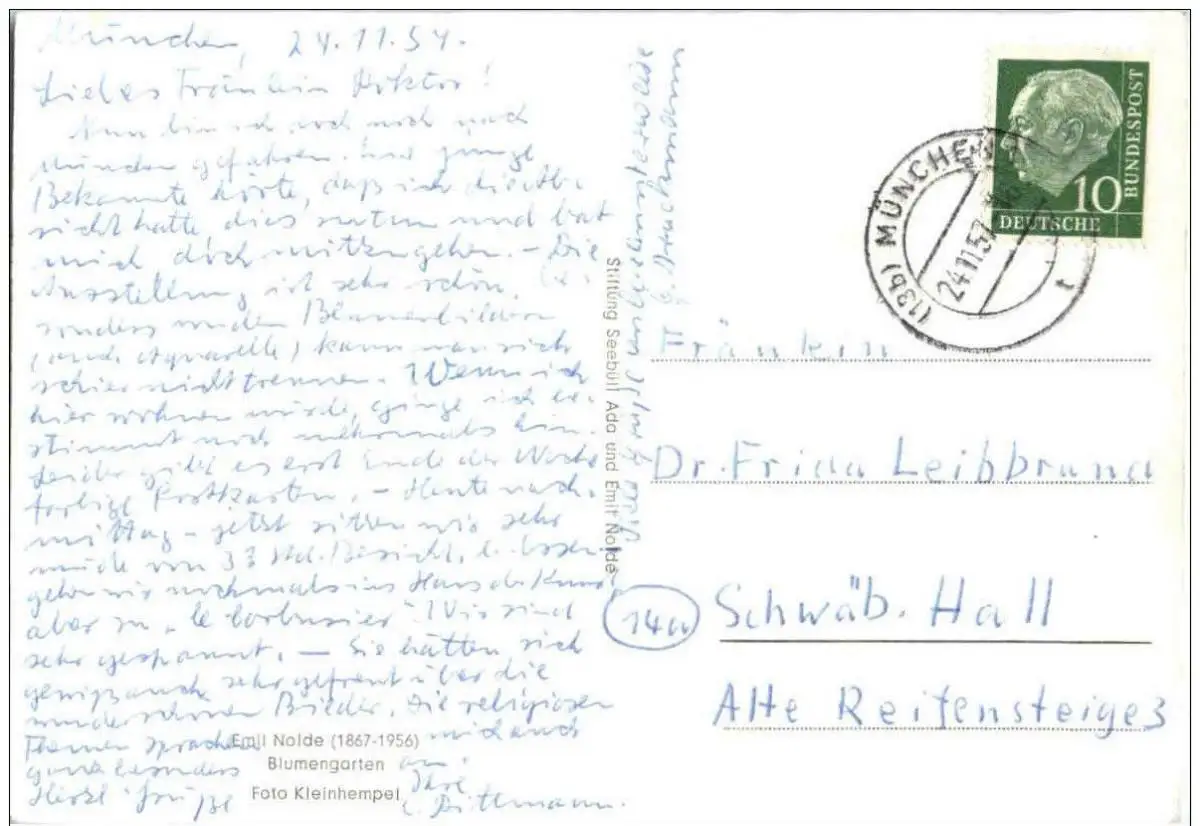 München, 24.11.57.
Liebes Fräulein Doktor!
Nun bin ich doch noch nach
München gefahren. Eine junge
Bekannte hörte, daß ich die Ab-
sicht hatte, dies zu tun und bat
mich doch mitzugehen. – Die
Ausstellung ist sehr schön. Be-
sonders von den Blumenbildern
(und Aquarelle) kann man sich
schier nicht trennen. Wenn ich
hier wohnen würde, ginge ich be-
stimmt noch mehrmals hin.
Leider gibt es erst Ende der Woche
farbige Postkarten. – Heute nach-
mittag – jetzt sitzen wir sehr
müde von 3 Std. Besicht. b. Essen –
gehen wir nochmals ins Haus der Kunst
aber zu „le Corbusier". Wir sind
sehr gespannt. – Sie hätten sich
gewiß auch sehr gefreut über die
wunderschönen Bilder. Die religiösen
Themen sprachen mich auch
ganz besonders an.
Herzl. Grüße Ihre
Dittmann.
Emil Nolde (1867-1956)
Blumengarten
Foto Kleinhempel
Stiftung Seebüll Ada und Emil Nolde
(13b) MÜNCHEN
24.11.57
10
DEUTSCHE
BUNDESPOST
Fräulein
Dr. Frida Leibbrand
14a Schwäb. Hall
Alte Reifensteige 3